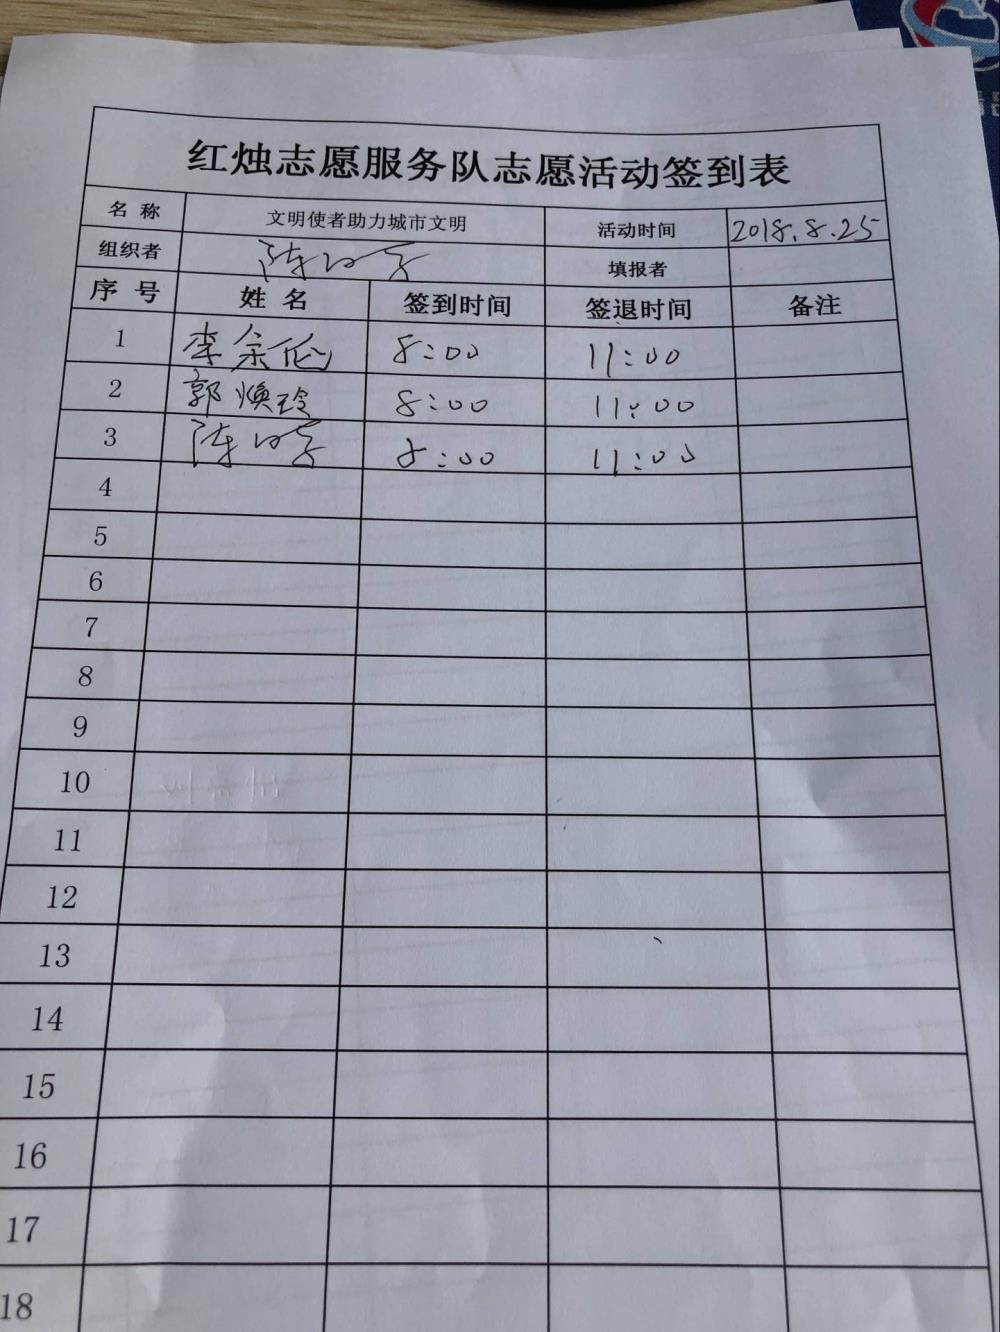 红烛志愿服务队志愿活动签到表
名 称 文明使者助力城市文明 活动时间 2018.8.25
组织者 陈 填报者
序 号 姓 名 签到时间 签退时间 备注
1 李余伦 8:00 11:00
2 郭焕玲 8:00 11:00
3 陈 8:00 11:00
4
5
6
7
8
9
10
11
12
13
14
15
16
17
18